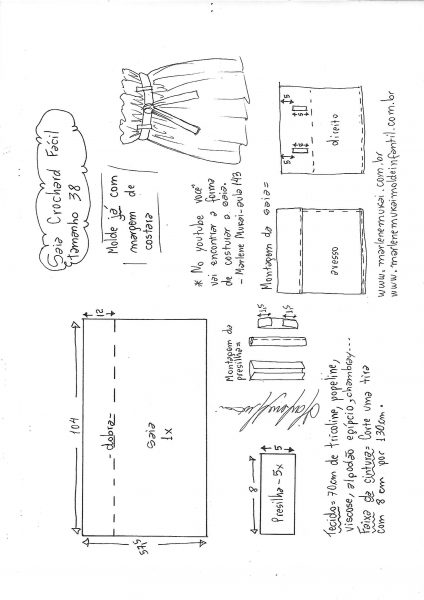 Saia Crochard Fácil
tamanho 38
Molde já com
margem de
costura
* No youtube você
vai encontrar a forma
de costurar a saia.
- Marlene Mukai - aula 143
104
12
dobra
saia
1x
57,5
Montagem da
presilha=
1,5
1,5
8
5
Presilha - 5x
Montagem da saia=
avesso
direito
5
5
5
Tecido = 70cm de tricoline, popeline,
viscose, algodão egípcio, chambray...
Faixa da cintura = Corte uma tira
com 8 cm por 130cm.
www.marlenemukai.com.br
www.marlenemukaimoldeinfantil.com.br